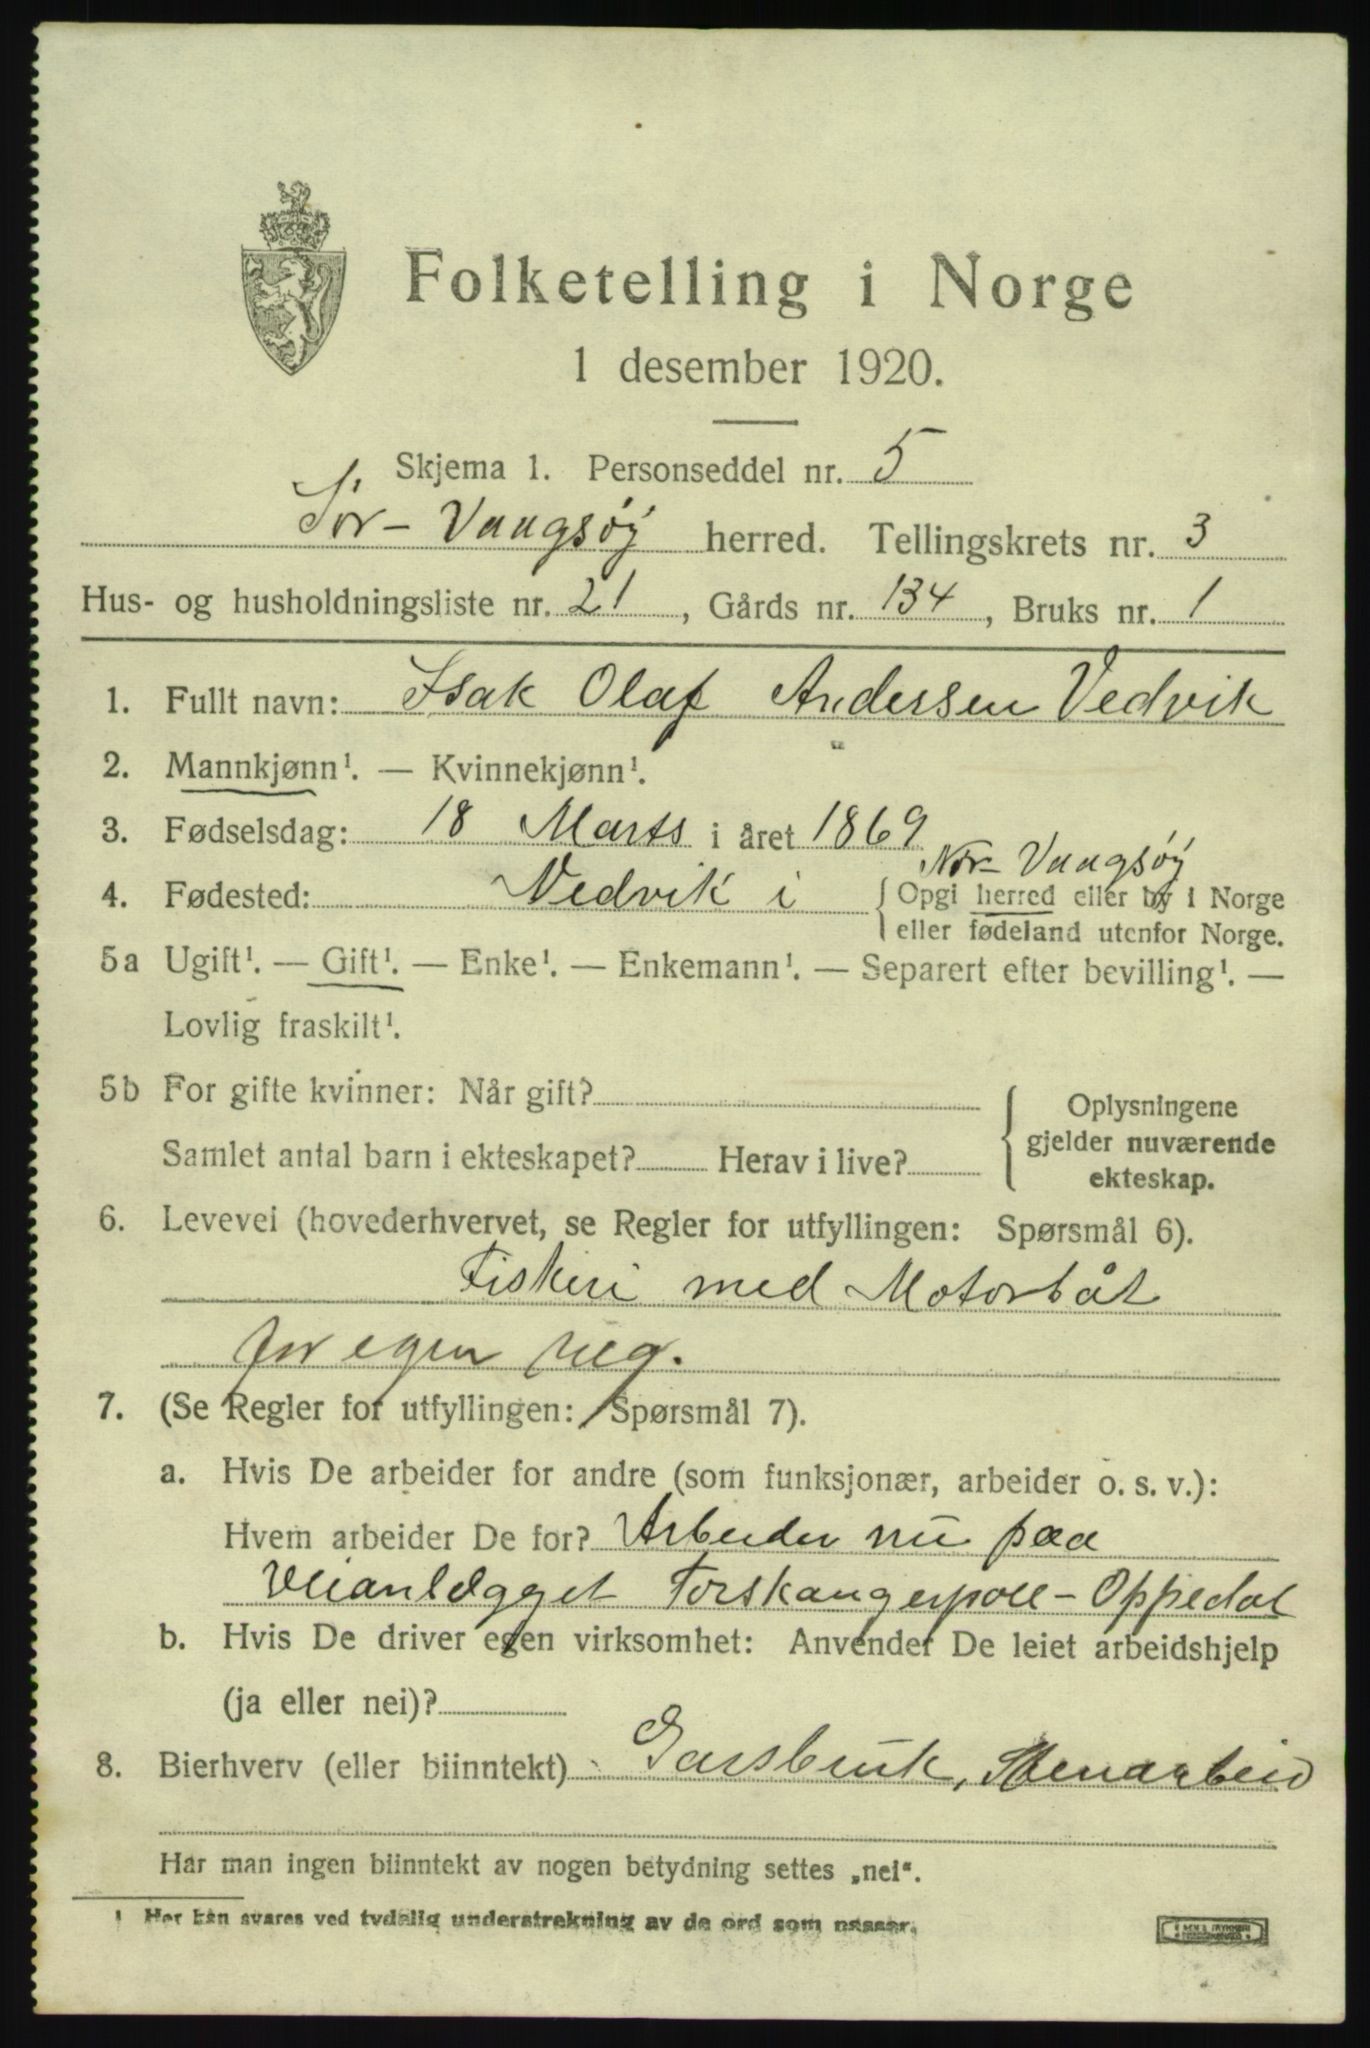 Folketelling i Norge
1 desember 1920.
Skjema 1. Personseddel nr. 5
Sør-Vaagsøy herred. Tellingskrets nr. 3
Hus- og husholdningsliste nr. 21, Gårds nr. 134, Bruks nr. 1
1. Fullt navn: Isak Olaf Andersen Vedvik
2. Mannkjønn¹. — Kvinnekjønn¹.
3. Fødselsdag: 18 Marts i året 1869
Nor-Vaagsøy
4. Fødested: Vedvik i { Opgi herred eller by i Norge
eller fødeland utenfor Norge.
5a Ugift¹. — Gift¹. — Enke¹. — Enkemann¹. — Separert efter bevilling¹. —
Lovlig fraskilt¹.
5b For gifte kvinner: Når gift?
Samlet antal barn i ekteskapet? Herav i live?
Oplysningene
gjelder nuværende
ekteskap.
6. Levevei (hovederhvervet, se Regler for utfyllingen: Spørsmål 6).
Fiskeri med Motorbåt
for egen reg.
7. (Se Regler for utfyllingen: Spørsmål 7).
a. Hvis De arbeider for andre (som funksjonær, arbeider o. s. v.):
Hvem arbeider De for? Arbeider nu paa
Veianlægget Torskangerpoll-Oppedal
b. Hvis De driver egen virksomhet: Anvender De leiet arbeidshjelp
(ja eller nei)?
8. Bierhverv (eller biinntekt) Garsbruk, Stenarbeid
Har man ingen biinntekt av nogen betydning settes „nei“.
¹ Her kan svares ved tydelig understrekning av de ord som passer.